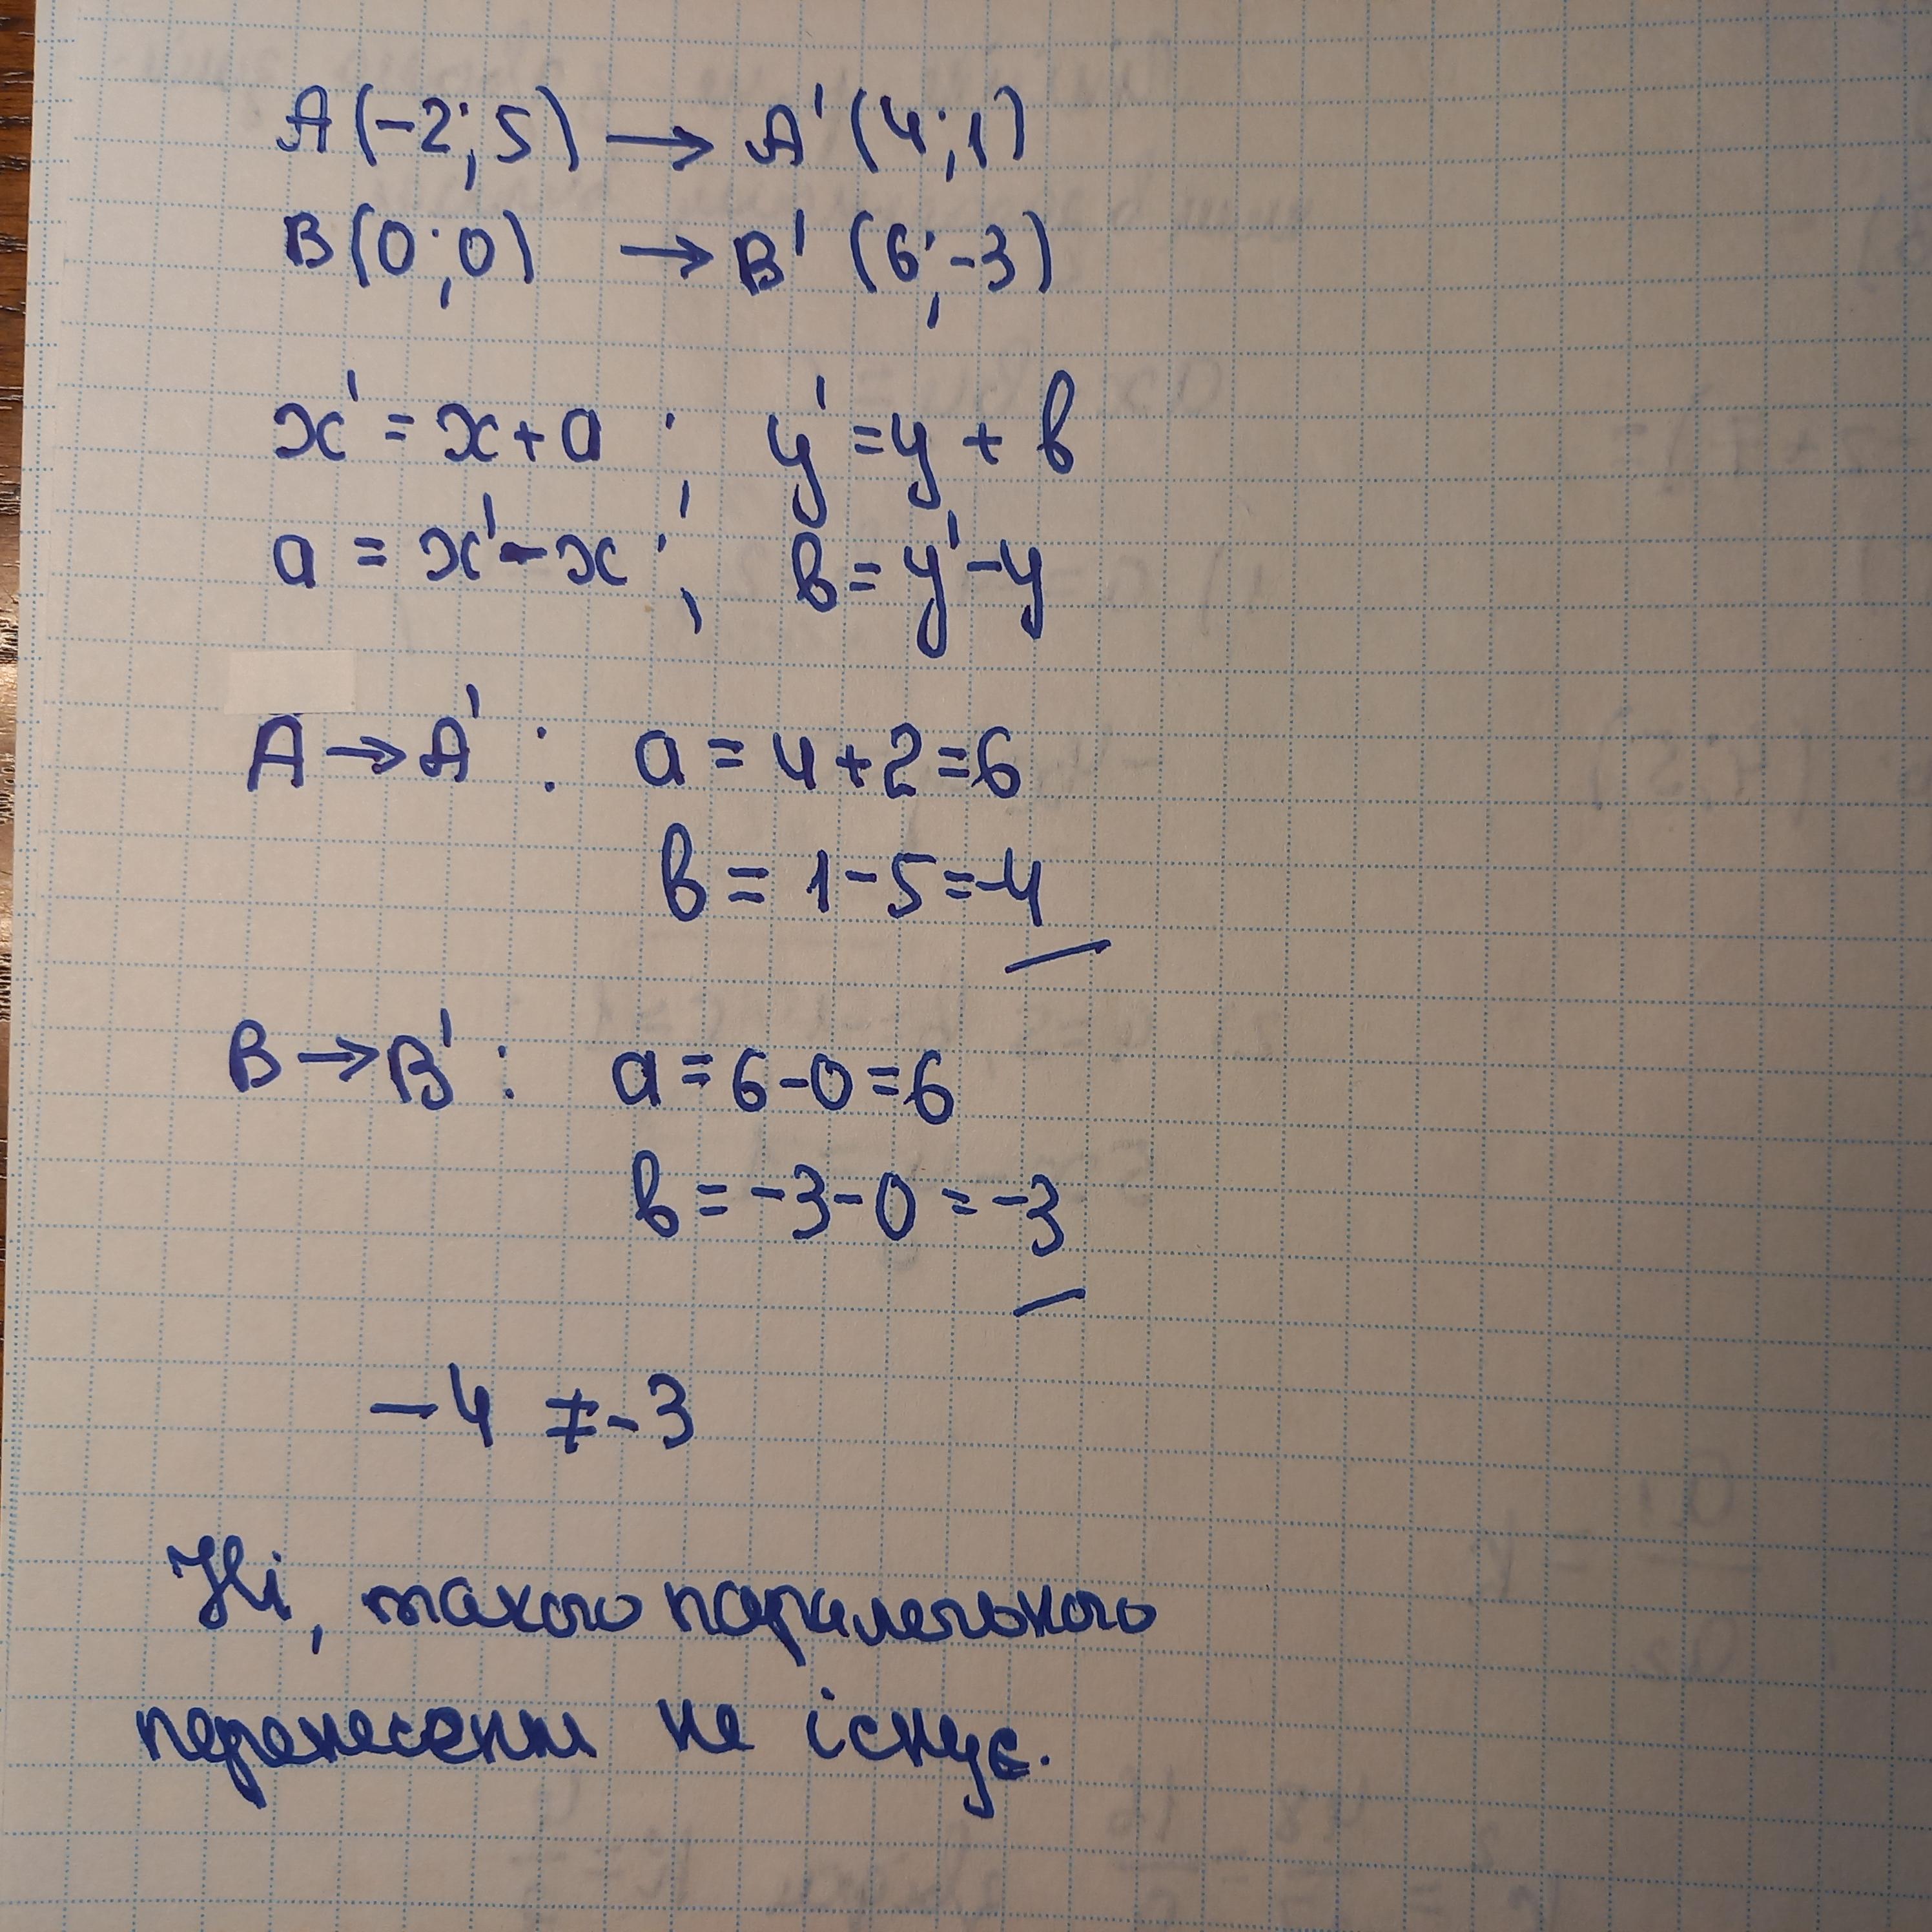 A(-2;5) → A'(4;1)
B(0;0) → B'(6;-3)
x' = x+a ; y' = y + b
a = x' - x ; b = y' - y
A → A' : a = 4+2=6
b = 1-5=-4
B → B' : a = 6-0=6
b = -3-0 = -3
-4 ≠ -3
Ні, такого паралельного
перенесення не існує.